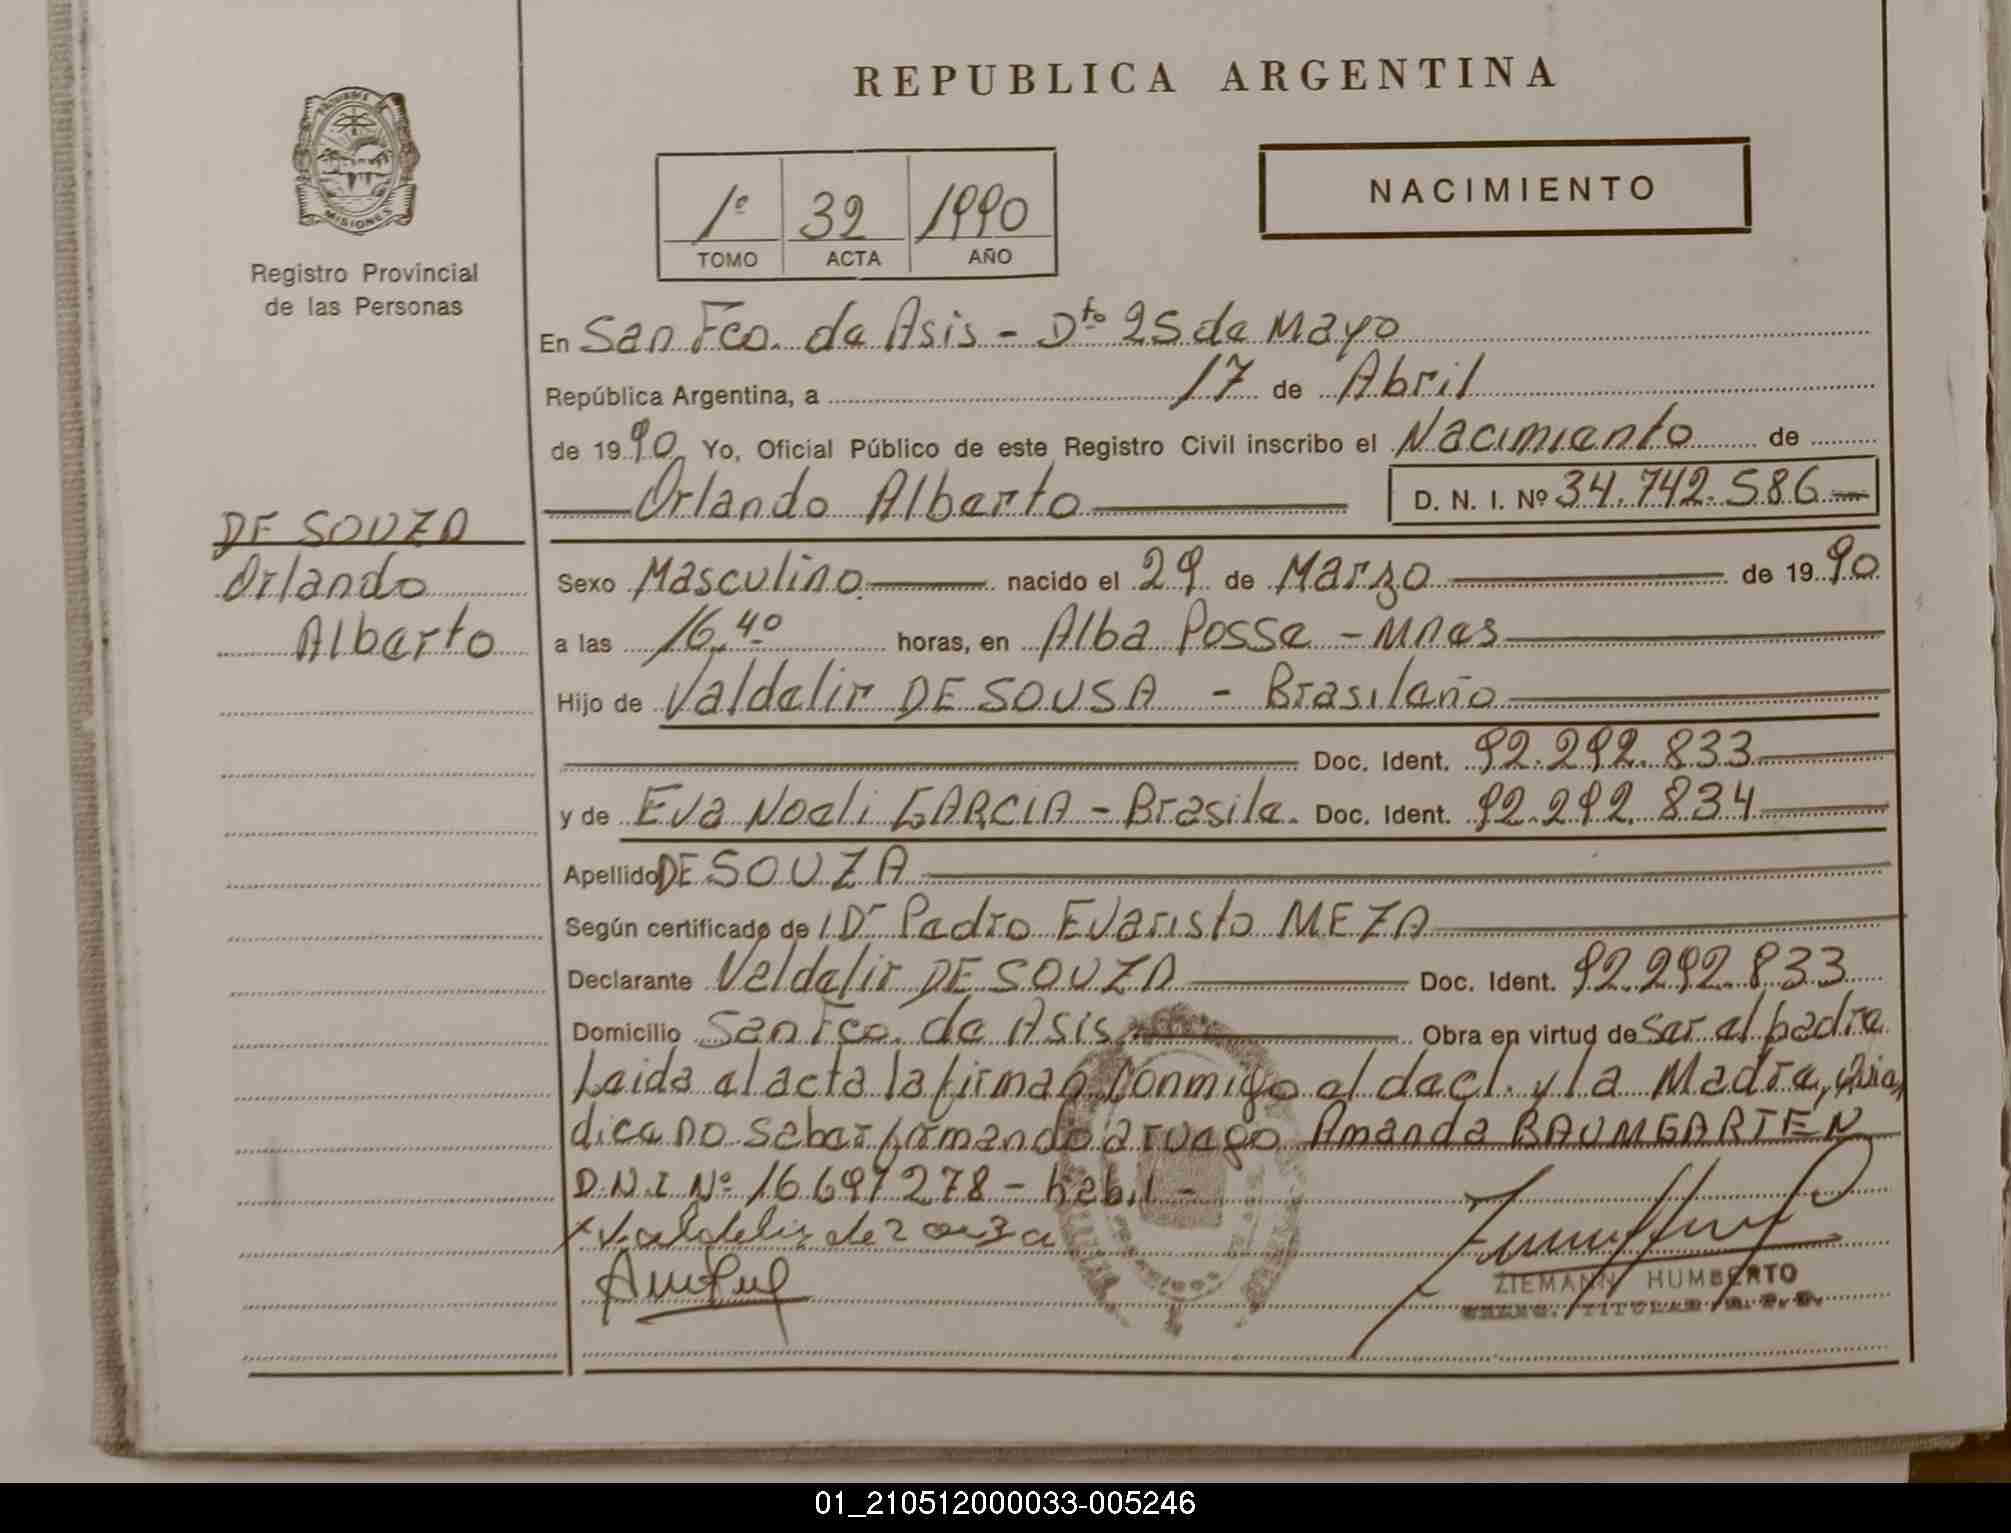 REPUBLICA ARGENTINA
PROVINCIA DE
MISIONES
Registro Provincial
de las Personas
1º 32 1990
TOMO ACTA AÑO
NACIMIENTO
En San Fco. de Asis - Dto 25 de Mayo
República Argentina, a 17 de Abril
de 1990 Yo, Oficial Público de este Registro Civil inscribo el Nacimiento de
Orlando Alberto D. N. I. Nº 34.742.586
DE SOUZA
Orlando
Alberto
Sexo Masculino nacido el 29 de Marzo de 1990
a las 16,40 horas, en Alba Posse - Mnes
Hijo de Valdelir DE SOUSA - Brasileño
Doc. Ident. 92.292.833
y de Eva Noeli GARCIA - Brasile. Doc. Ident. 92.292.834
Apellido DE SOUZA
Según certificado de l Dr Pedro Evaristo MEZA
Declarante Veldelir DE SOUZA Doc. Ident. 92.292.833
Domicilio San Fco. de Asis Obra en virtud de ser el padre
Leida el acta la firman conmigo el decl. y la Madre,
dice no saber firmando a ruego Amanda BAUMGARTEN
D.N.I Nº 16.697.278 - hebil -
x Valdeliz de zouza
ZIEMANN HUMBERTO
01_210512000033-005246